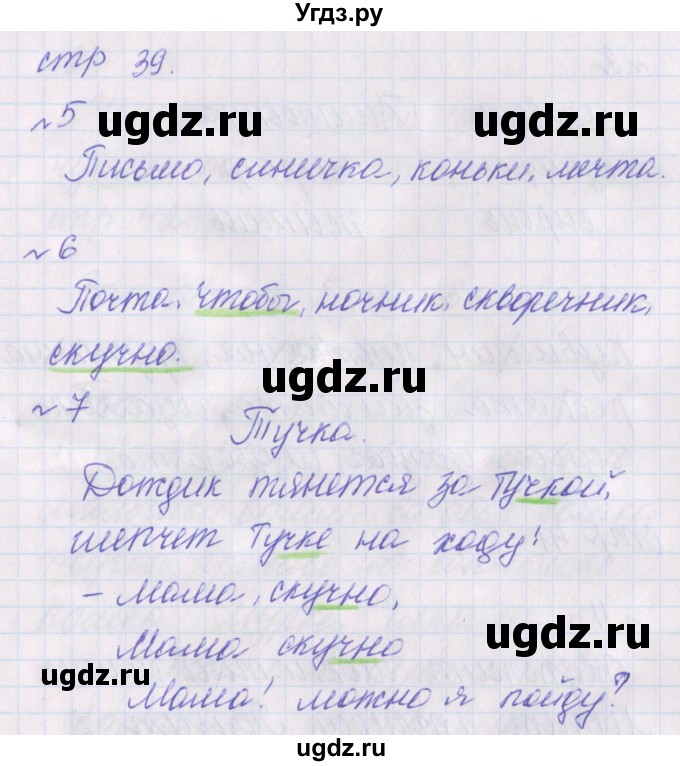 Угдз.ру
стр 39.
№5
ugdz.ru
ugdz.ru
Письмо, синичка, коньки, мечта.
№6
Почта, чтобы, ночник, скворечник,
скучно.
ugdz.ru
№7
Тучка.
Дождик тянется за Тучкой,
шепчет Тучке на ходу!
ugdz.ru
- Мама, скучно,
Мама скучно
ugdz.ru
ugdz.ru
Мама! можно я пойду?
ugdz.ru